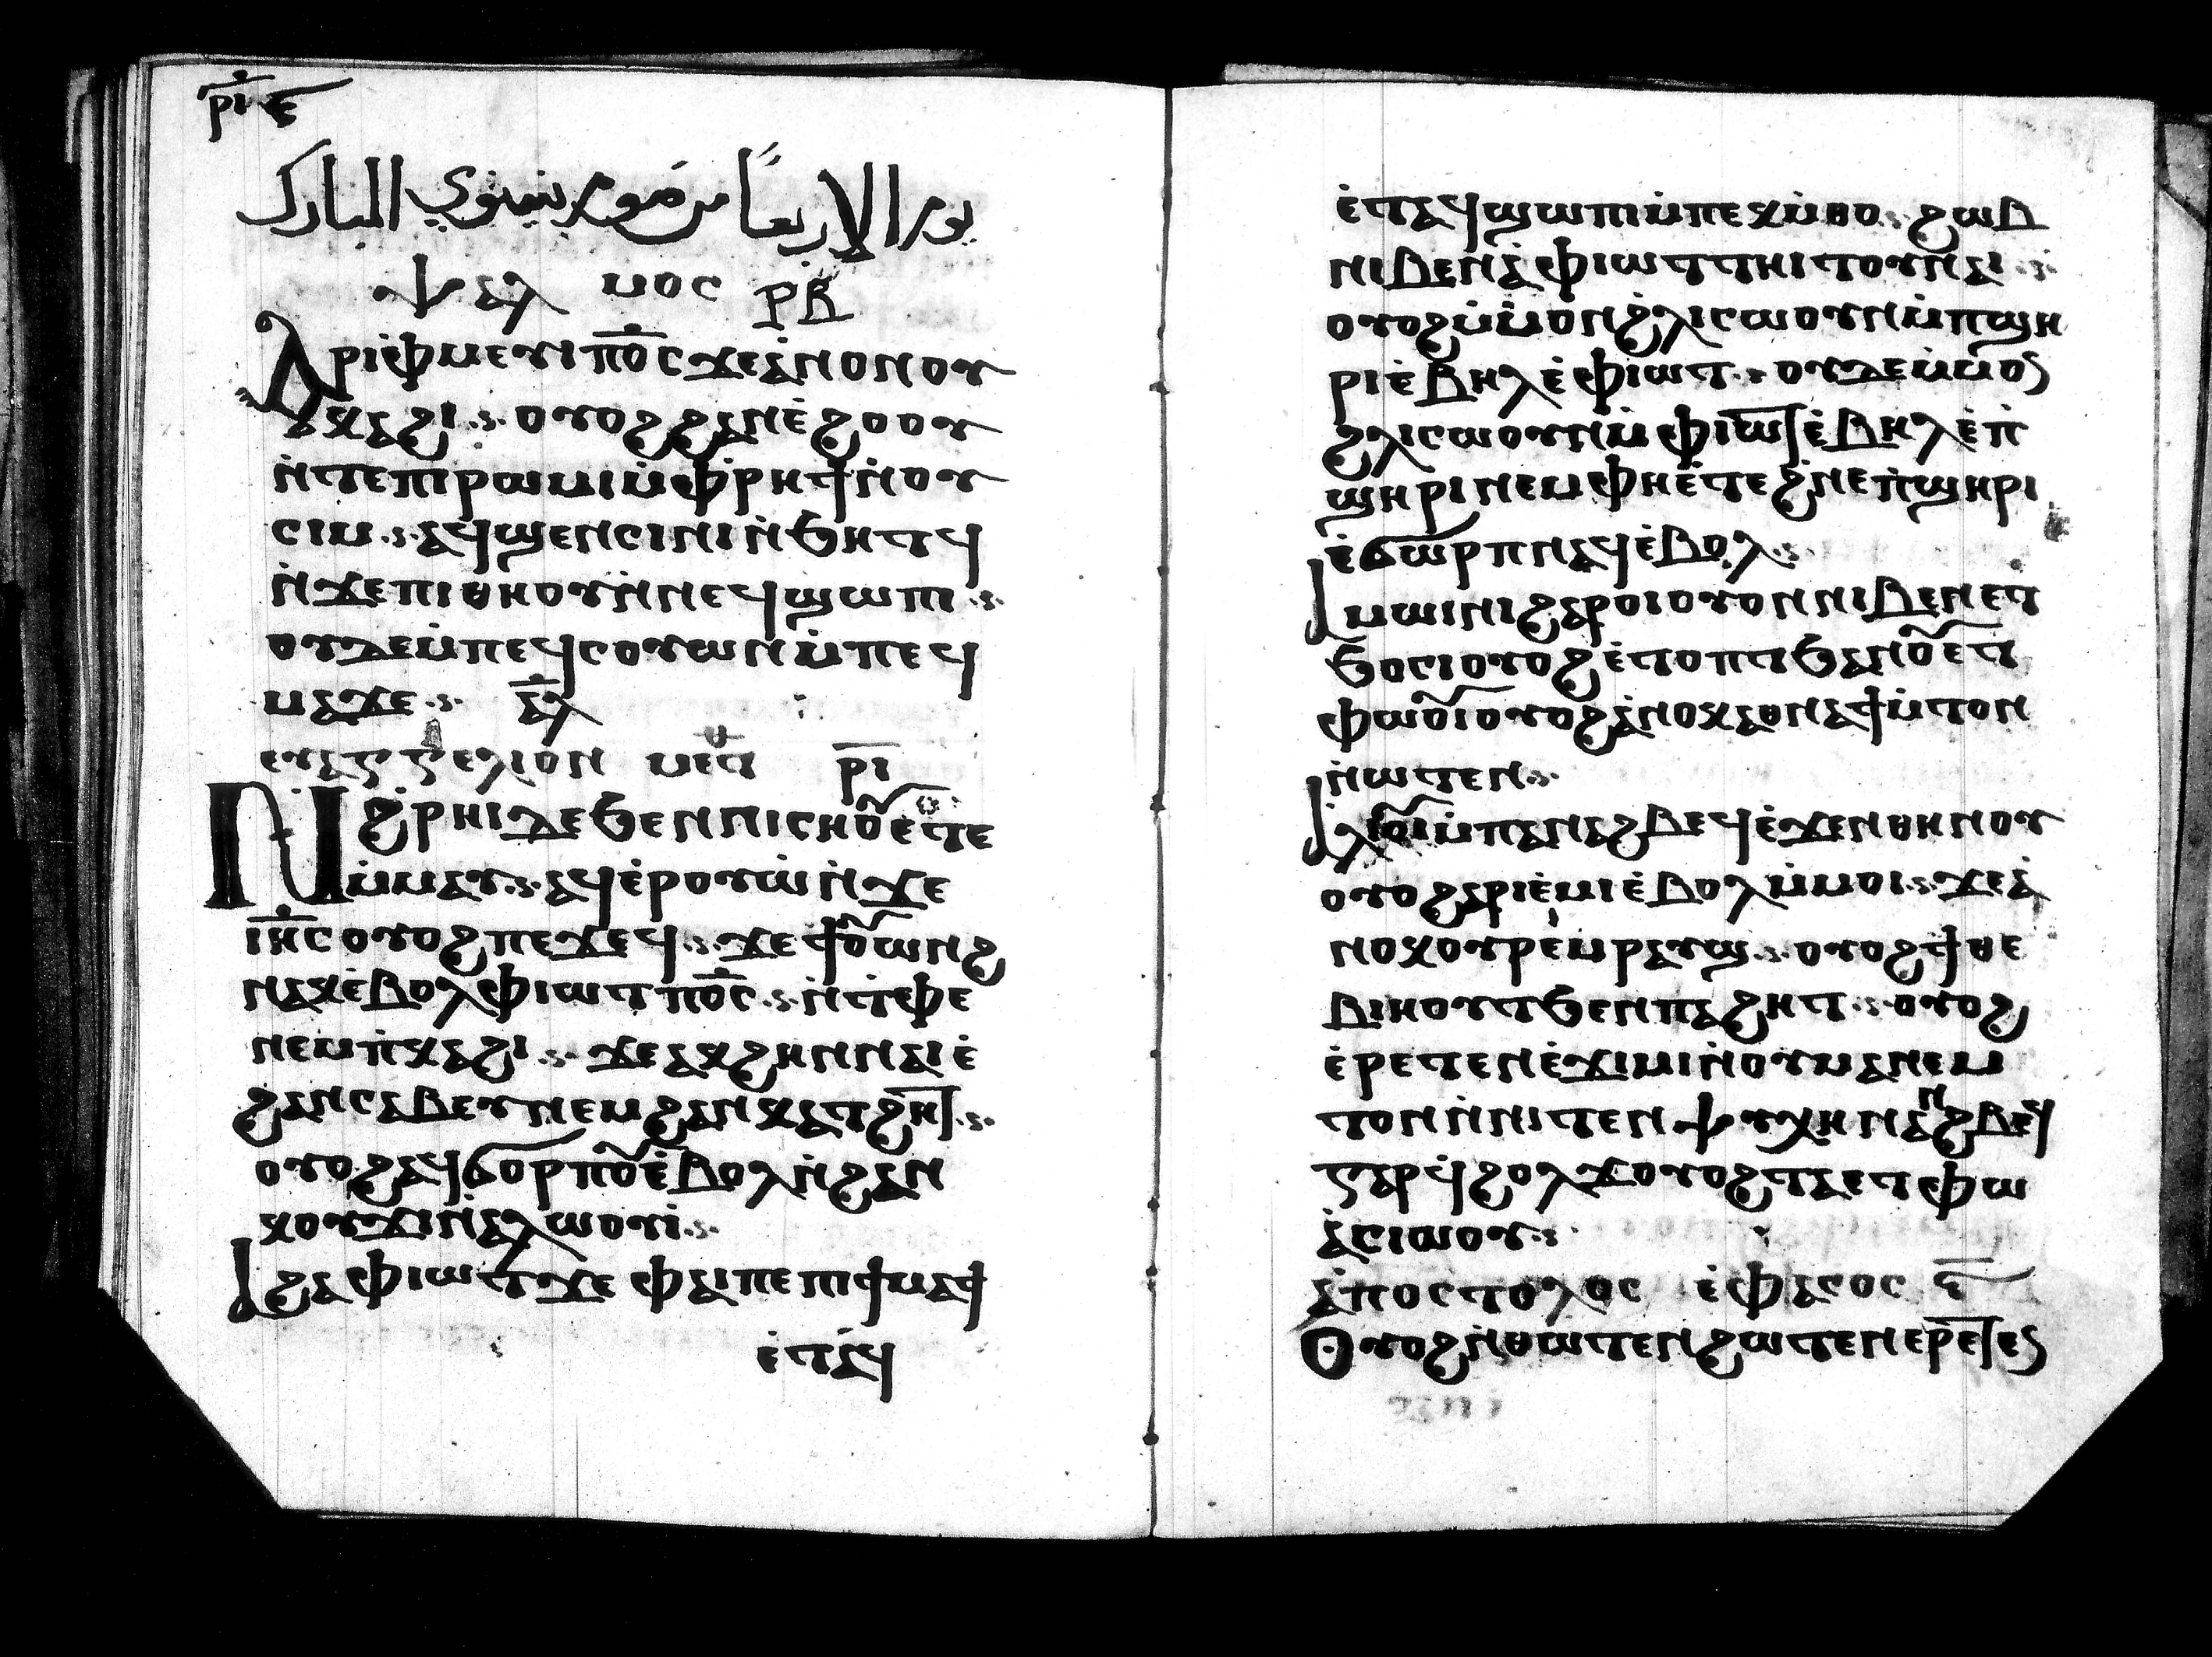 ⲣⲓⲋ
يوم الاربعاً من صوم نينوي المبارك
ⲯⲁⲗ ⲙⲟⲥ ⲣⲃ
Ⲁⲣⲓⲫ̀ⲙⲉⲩⲓ ⲡ̅ⲟ̅ⲥ̅ ϫⲉ ⲁ̀ⲛⲟⲛ ⲟⲩ
ⲕⲁϩⲓ ⲟⲩⲟϩ ϩⲁⲛⲉ̀ϩⲟⲟⲩ
ⲛ̀ⲧⲉ ⲡⲓⲣⲱⲙⲓ ⲙ̀ⲫ̀ⲣⲏϯ ⲛ̀ⲟⲩ
ⲥⲓⲙ ⲁϥϣⲉⲛⲥⲓⲛⲓ ⲛ̀ϧⲏⲧϥ
ⲛ̀ϫⲉ ⲡⲓⲑⲏⲟⲩ ⲛ̀ⲛⲉϥϣⲱⲡⲓ
ⲟⲩⲇⲉ ⲙ̀ⲡⲉϥⲥⲟⲩⲱⲛ ⲙ̀ⲡⲉϥ
ⲙⲁ ϫⲉ ⲁ̅ⲗ̅
ⲉⲩⲁⲅⲅⲉⲗⲓⲟⲛ ⲙⲉⲧ ⲣ̅ⲓ̅
Ⲛ̀ϩⲣⲏⲓ ⲇⲉ ϧⲉⲛ ⲡⲓⲥⲏⲟⲩ ⲉ̀ⲧⲉ
ⲙ̀ⲙⲁⲩ ⲁϥⲉ̀ⲣⲟⲩⲱ̀ ⲛ̀ϫⲉ
ⲓⲏⲥ ⲟⲩⲟϩ ⲡⲉϫⲉϥ ϫⲉ ϯⲟⲩⲱⲛϩ
ⲛⲁⲕ ⲉ̀ⲃⲟⲗ ⲫⲓⲱⲧ ⲡ̅ⲟ̅ⲥ̅ ⲛ̀ⲧ̀ⲫⲉ
ⲛⲉⲙ ⲡ̀ⲕⲁϩⲓ ϫⲉ ⲁⲕϩⲏⲡ ⲛⲁⲓ ⲉ̀
ϩⲁⲛⲥⲁⲃⲉⲩ ⲛⲉⲙ ϩⲁⲛⲕⲁⲧϩⲏⲧ
ⲟⲩⲟϩ ⲁϥϭⲟⲣⲡⲟⲩ ⲉ̀ⲃⲟⲗ ⲛ̀ϩⲁⲛ
ⲕⲟⲩϫⲓ ⲛ̀ⲁⲗⲱⲟⲩⲓ
ⲁϩⲁ ⲫⲓⲱⲧ ϫⲉ ⲫⲁⲓ ⲡⲉ ⲡⲓϯⲙⲁϯ
ⲉ̀ⲧⲁϥ
ⲉ̀ⲧⲁϥϣⲱⲡⲓ ⲙ̀ⲡⲉⲕⲙ̀ⲑⲟ ϩⲱⲃ
ⲛⲓⲃⲉⲛ ⲁ̀ ⲫⲓⲱⲧ ⲧⲏⲓⲧⲟⲩ ⲛⲁⲓ
ⲟⲩⲟϩ ⲙ̀ⲙⲟⲛ ϩⲗⲓ ⲥⲱⲟⲩⲛ ⲙ̀ⲡϣⲏ
ⲣⲓ ⲉ̀ⲃⲏⲗ ⲉ̀ⲫⲓⲱⲧ ⲟⲩⲇⲉ ⲙ̀ⲙⲟⲛ
ϩⲗⲓ ⲥⲱⲟⲩⲛ ⲙ̀ⲫⲓⲱⲧ ⲉ̀ⲃⲏⲗ ⲉ̀ⲡ̀
ϣⲏⲣⲓ ⲛⲉⲙ ⲫⲏ ⲉ̀ⲧⲉϩⲛⲉ ⲡ̀ϣⲏⲣⲓ
ⲉ̀ϭⲱⲣⲡ ⲛⲁϥ ⲉ̀ⲃⲟⲗ
ⲁⲙⲱⲓⲛⲓ ϩⲁⲣⲟⲓ ⲟⲩⲟⲛ ⲛⲓⲃⲉⲛ ⲉⲧ
ϧⲟⲥⲓ ⲟⲩⲟϩ ⲉ̀ⲧⲟⲡⲧ ϧⲁ ⲛⲟⲩⲉⲧ
ⲫⲱⲟⲩⲓ ⲟⲩⲟϩ ⲁ̀ⲛⲟⲕ ⲁⲑⲛⲁϯⲙ̀ⲧⲟⲛ
ⲛ̀ⲱⲧⲉⲛ
ⲁⲗⲓⲟⲩⲓ ⲙ̀ⲡⲁⲛⲁϩⲃⲉϥ ⲉ̀ϫⲉⲛ ⲑⲏⲛⲟⲩ
ⲟⲩⲟϩ ⲁⲣⲓⲉ̀ⲙⲓ ⲉ̀ⲃⲟⲗ ⲙ̀ⲙⲟⲓ ϫⲉ ⲁ̀
ⲛⲟⲕ ⲟⲩⲣⲉⲙⲣⲁⲩϣ ⲟⲩⲟϩ ϯⲑⲉ
ⲃⲓⲏⲟⲩⲧ ϧⲉⲛ ⲡⲁϩⲏⲧ ⲟⲩⲟϩ
ⲉ̀ⲣⲉⲧⲉⲛⲉ̀ϫⲓⲙⲓ ⲛ̀ⲟⲩⲙⲁⲛⲉⲙ
ⲧⲟⲛ ⲛ̀ⲛⲓⲧⲉⲛⲯⲩⲭⲏ ⲡⲁⲛⲁϩⲃⲉϥ
ⲅⲁⲣ ϥ̀ϩⲟⲗϫ ⲟⲩⲟϩ ⲧⲁⲉⲧⲫⲱ
ⲁ̀ⲥⲓⲱⲟⲩ
ⲁ̀ⲡⲟⲥⲧⲟⲗⲟⲥ ⲉ̀ⲫⲁⲥⲟⲥ
Ⲟⲩⲟϩ ⲛ̀ⲑⲱⲧⲉⲛ ϩⲱⲧⲉⲛ ⲉⲣⲉⲧⲉⲛ